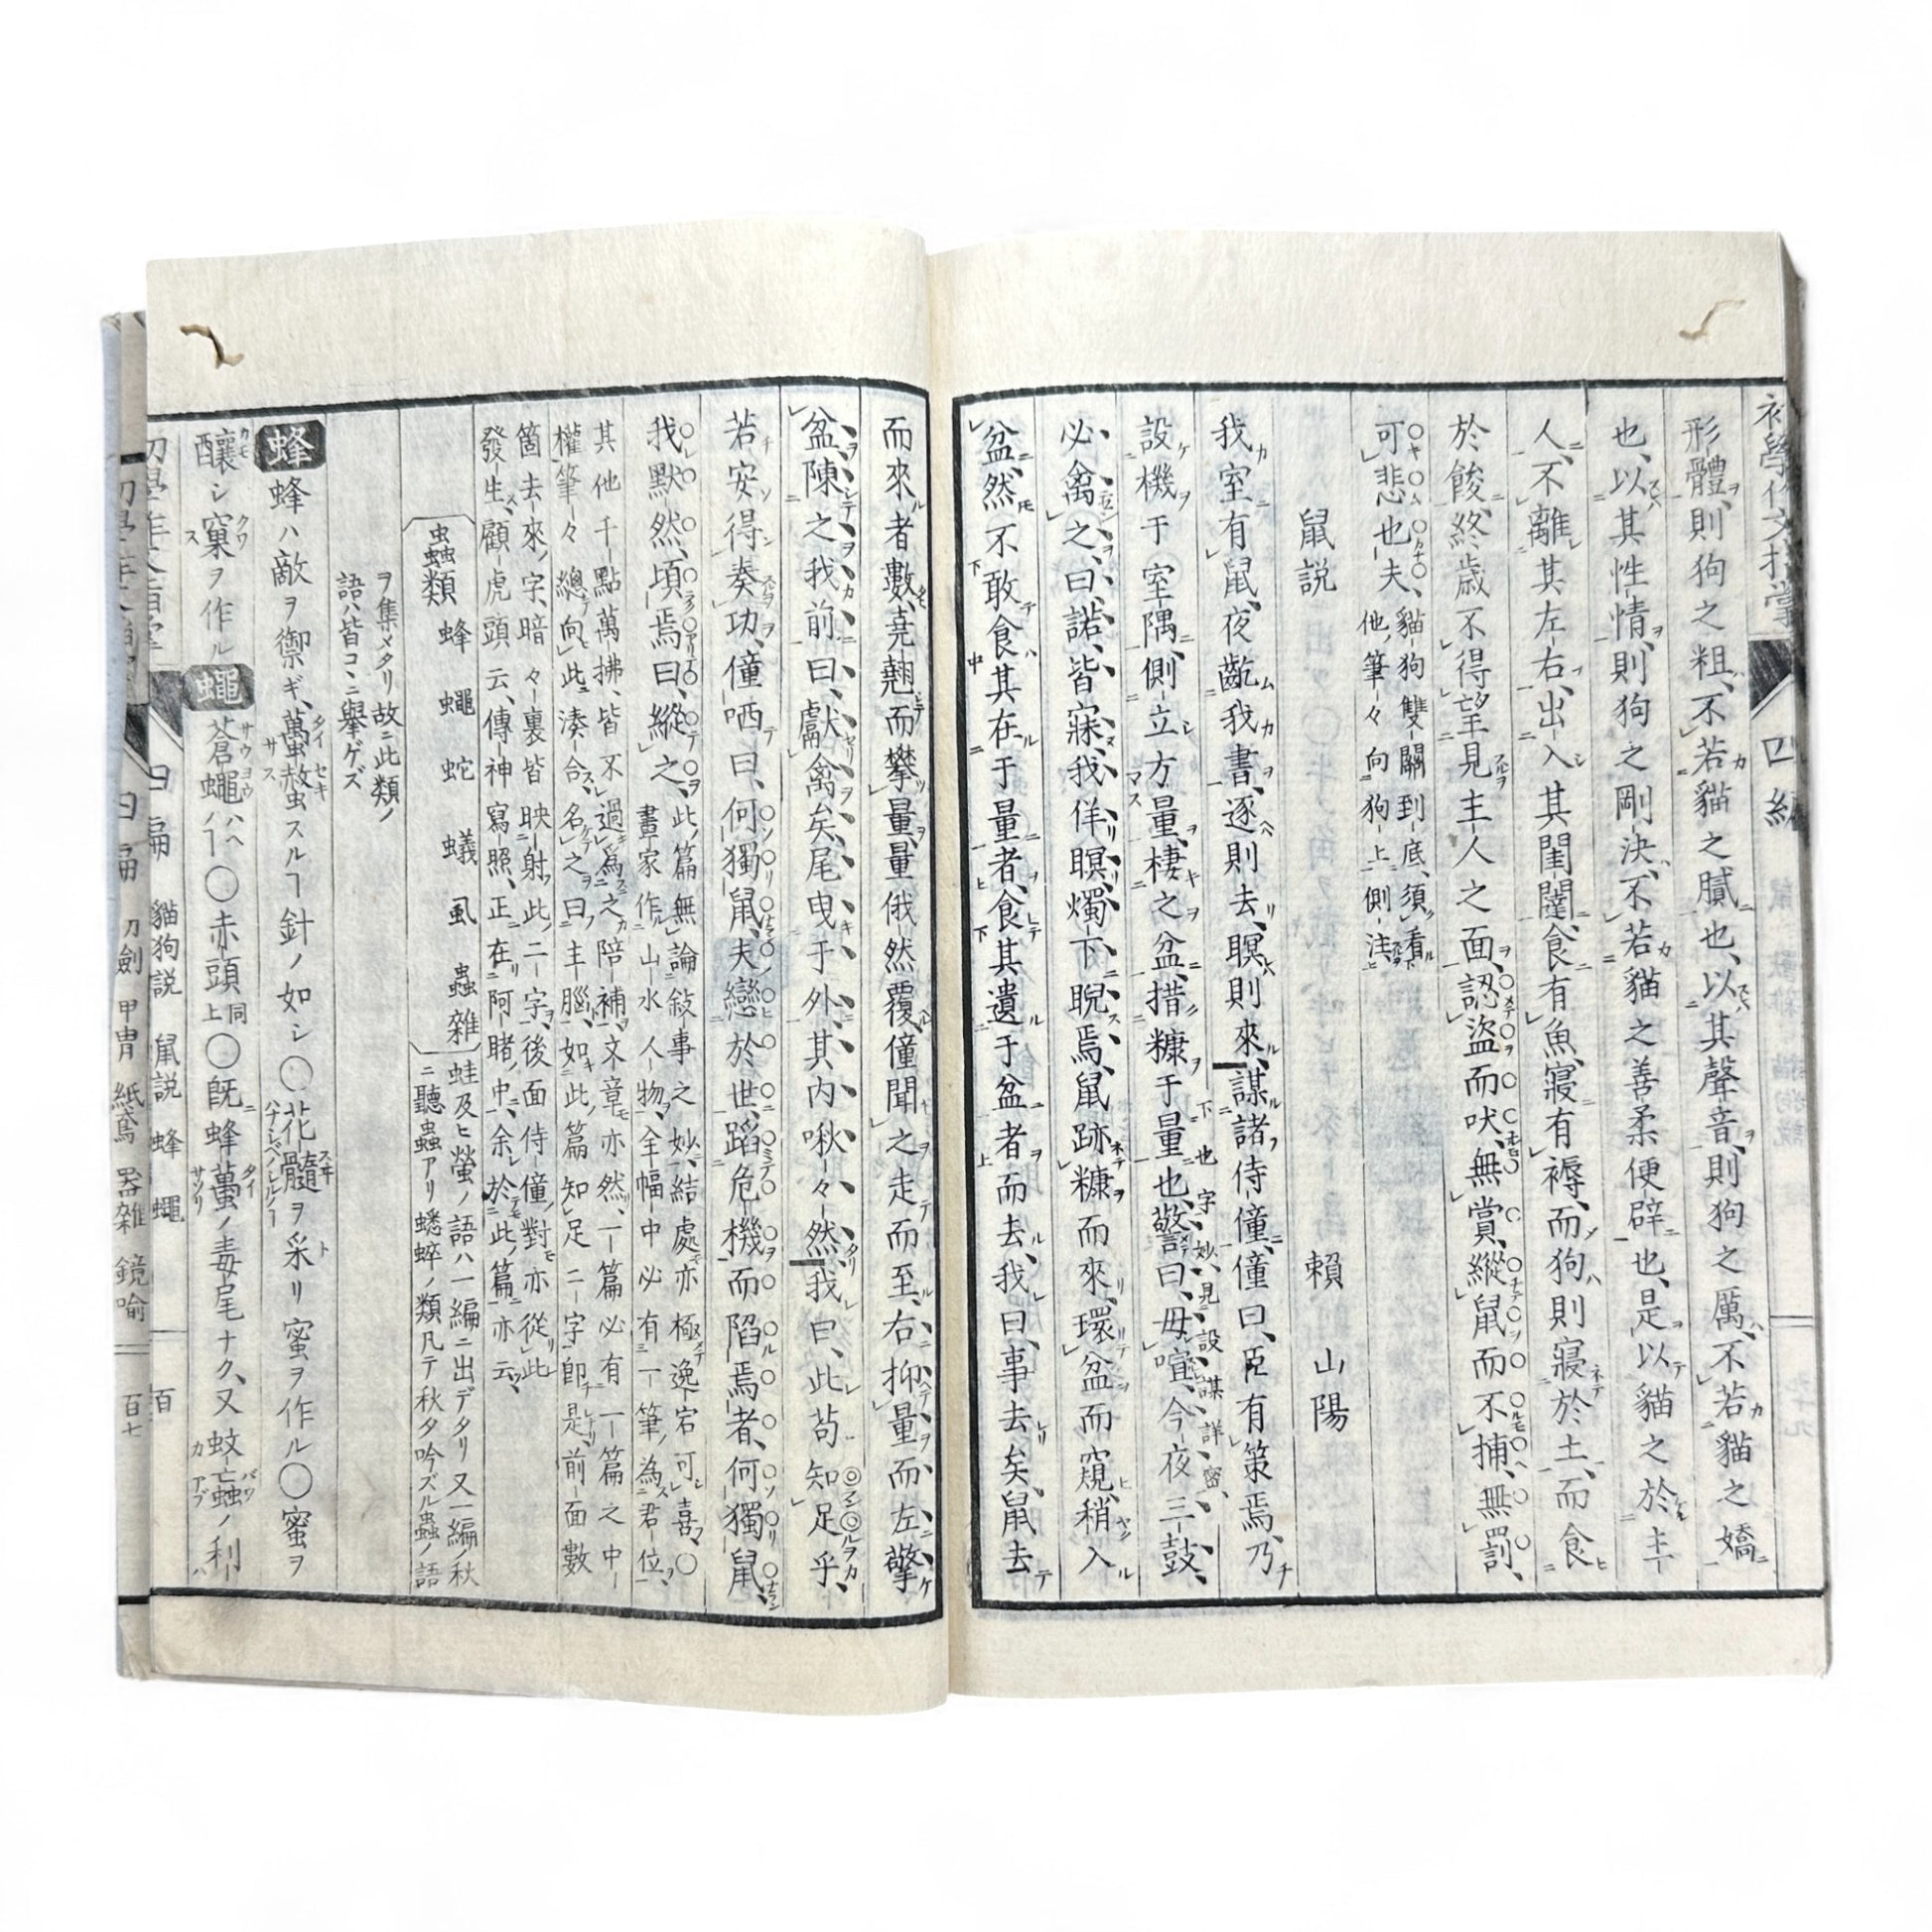 初學作文指掌 四編
形體、則狗之粗、不若貓之膩也、以其聲音、則狗之厲、不若貓之嬌
也、以其性情、則狗之剛決、不若貓之善柔便辟也、是以貓之於主
人、不離其左右、出入其閨闥、食有魚、寢有褥、而狗則寢於土、而食
於餕、終歲不得望見主人之面、認盜而吠、無賞、縱鼠而不捕、無罰、
可悲也夫、貓狗雙關到底、須看
他筆々向狗上側注
鼠説 賴山陽
我室有鼠、夜齕我書、逐則去、瞑則來、謀諸侍僮、僮曰、臣有策焉、乃
設機于室隅、側立方量、棲之盆、措糠于量也、警曰、毋喧、今夜三鼓、
也字妙、見設謀詳密、
必禽之、曰、諾、皆寐、我佯瞑、燭下睨焉、鼠跡糠而來、環盆而窺、稍入
盆、然不敢食其在于量者、食其遺于盆者而去、我曰、事去矣、鼠去
而來者數、堯翹而攀量、量俄然覆、僮聞之走而至、右抑量而左擎
盆、陳之我前曰、獻禽矣、尾曳于外、其内啾々然、我曰、此苟知足乎、
若安得奏功、僮哂曰、何獨鼠、夫戀於世、蹈危機而陷焉者、何獨鼠、
我默然、頃焉曰、縱之、此篇無論敍事之妙、結處亦極逸宕可喜、〇
畫家作山水人物、全幅中必有一筆為君位、
其他千點萬拂、皆不過為之陪補、文章亦然、一篇必有一篇之中
權、筆々總向此湊合、名之曰主腦、如此篇知足二字即是、前面數
箇去來字、暗々裏皆映射此二字、後面侍僮對亦從此
發生、顧虎頭云、傳神寫照、正在阿睹中、余於此篇亦云、
蟲類 蜂 蠅 蛇 蟻 虱 蟲雜 蛙及ヒ螢ノ語ハ一編ニ出デタリ又一編ノ秋
ニ聽蟲アリ蟋蟀ノ類凡テ秋夕吟ズル蟲ノ語
ヲ集メタリ故ニ此類ノ
語ハ皆コヽニ擧ゲズ
蜂 蜂ハ敵ヲ禦ギ、蠆螫スルヿ針ノ如シ〇花髓ヲ采リ蜜ヲ作ル〇蜜ヲ
釀シ窠ヲ作ル 蠅 蒼蠅ノヿ〇赤頭同上〇既ニ蜂蠆ノ毒尾ナク、又蚊蝱ノ利
貓狗説 鼠説 蜂 蠅 百
刀劍 甲冑 紙鳶 器雑 鏡喻 百七